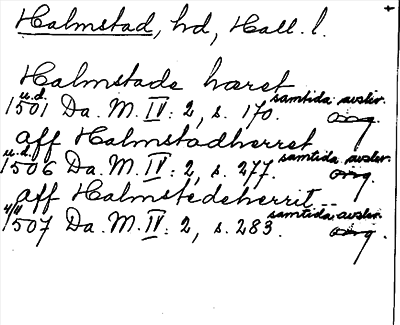 Halmstad, hd, Hall. l.
Halmstade hæret
u.d. samtida avskr.
1501 Da. M. IV: 2, s. 170. orig.
aff Halmstadherret
u.d. samtida avskr.
1506 Da. M. IV: 2, s. 277. orig.
aff Halmstedeherrit --
4/4 samtida avskr.
1507 Da. M. IV: 2, s. 283. orig.